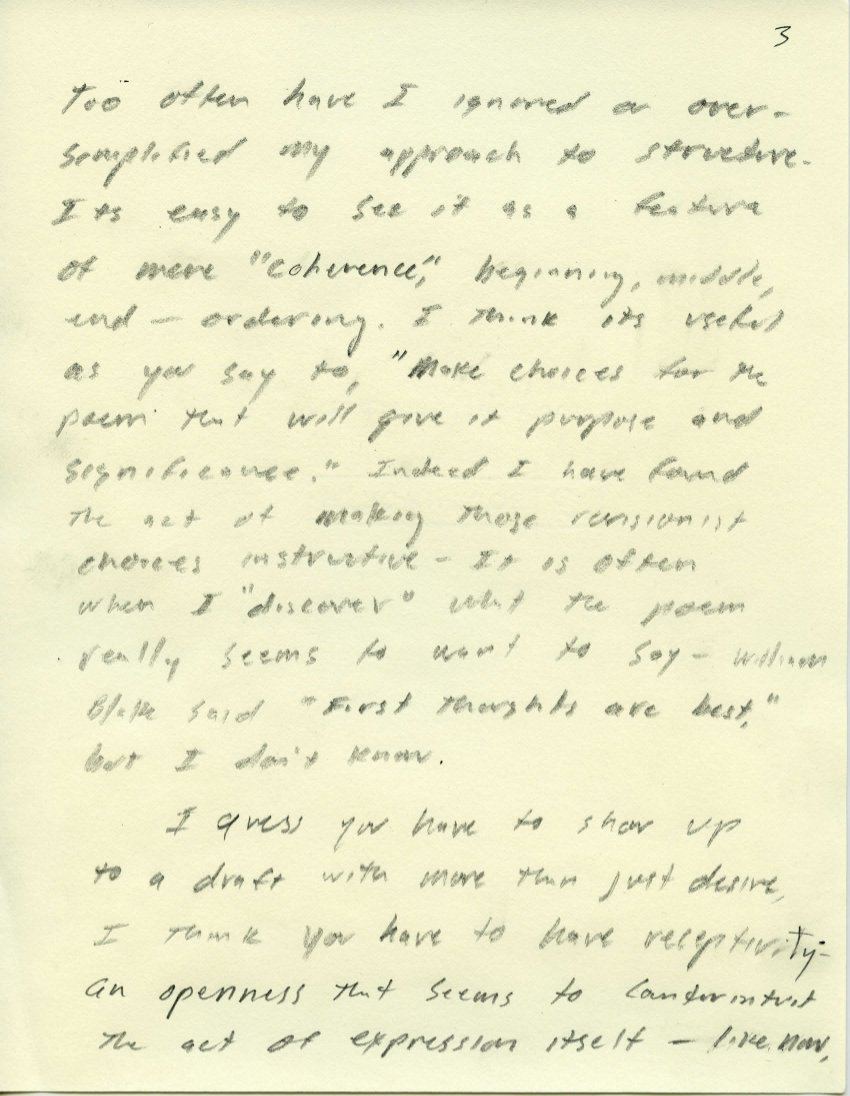 3
Too often have I ignored or over-
simplified my approach to structure.
Its easy to see it as a feature
of mere "coherence," beginning, middle,
end — ordering. I think its useful
as you say to, "Make choices for the
poem that will give it purpose and
significance." Indeed I have found
the act of making those revisionist
choices instructive - It is often
when I "discover" what the poem
really seems to want to say - William
Blake said "First thoughts are best,"
but I don't know.
I guess you have to show up
to a draft with more than just desire,
I think you have to have receptivity-
an openness that seems to
the act of expression itself — like now,